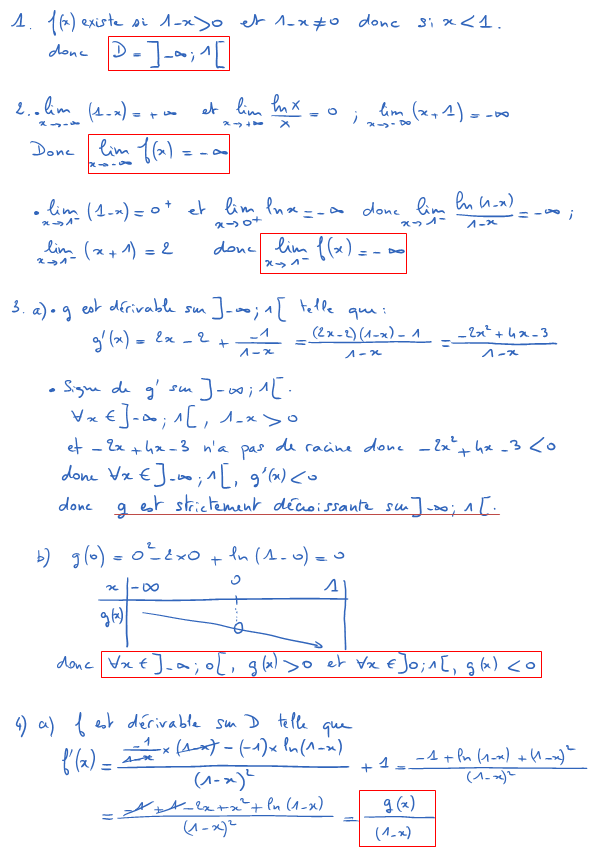 1. f(x) existe si 1-x>0 et 1-x≠0 donc si x<1.
donc D = ]-∞; 1[
2. • lim x→-∞ (1-x) = +∞ et lim x→+∞ ln x / x = 0 ; lim x→-∞ (x+1) = -∞
Donc lim x→-∞ f(x) = -∞
• lim x→1⁻ (1-x) = 0⁺ et lim x→0⁺ ln x = -∞ donc lim x→1⁻ ln(1-x) / 1-x = -∞ ;
lim x→1⁻ (x+1) = 2 donc lim x→1⁻ f(x) = -∞
3. a) • g est dérivable sur ]-∞; 1[ telle que :
g'(x) = 2x - 2 + -1 / 1-x = (2x-2)(1-x) - 1 / 1-x = -2x² + 4x - 3 / 1-x
• Signe de g' sur ]-∞; 1[.
∀x ∈ ]-∞; 1[, 1-x > 0
et -2x + 4x - 3 n'a pas de racine donc -2x² + 4x - 3 < 0
donc ∀x ∈ ]-∞; 1[, g'(x) < 0
donc g est strictement décroissante sur ]-∞; 1[.
b) g(0) = 0² - 2×0 + ln(1-0) = 0
x -∞ 0 1
g(x) 0
donc ∀x ∈ ]-∞; 0[, g(x) > 0 et ∀x ∈ ]0; 1[, g(x) < 0
4) a) f est dérivable sur D telle que
f'(x) = -1 / 1-x × (1-x) - (-1) × ln(1-x) / (1-x)² + 1 = -1 + ln(1-x) + (1-x)² / (1-x)²
= -1 + 1 - 2x + x² + ln(1-x) / (1-x)² = g(x) / (1-x)